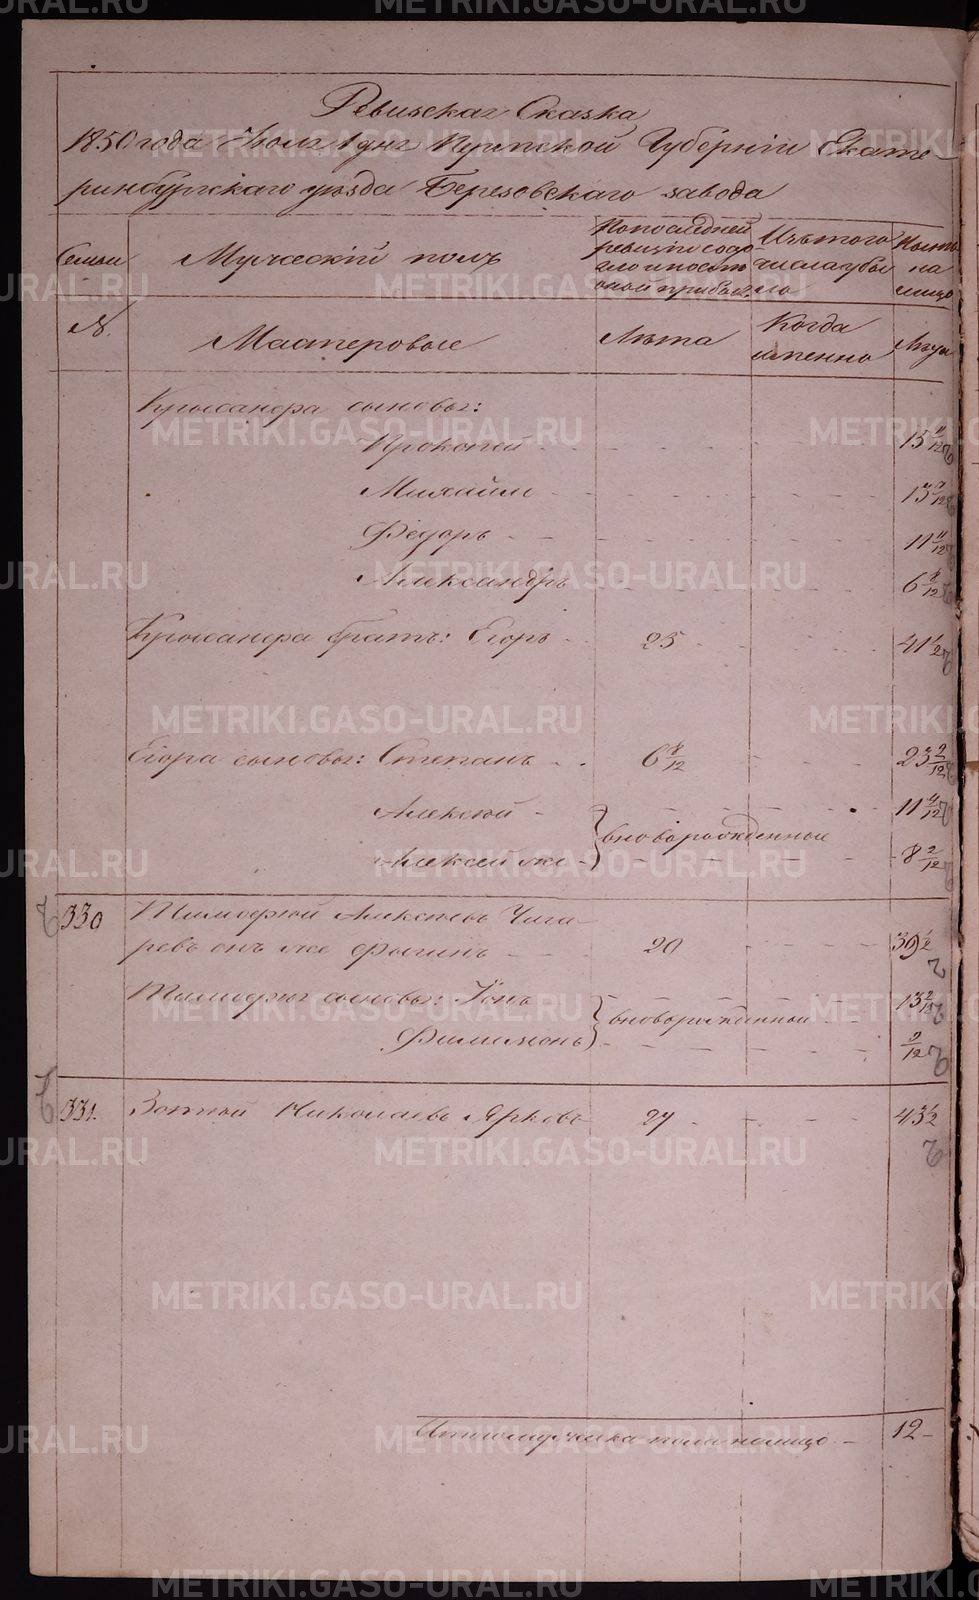 Ревизская Сказка
1850 года Июля 1 дня Пермской Губерніи Екате-
ринбургскаго уѣзда Березовскаго завода
Семьи
Мужескій полъ
По последней
ревизіи состо
яло и после
оной прибыл.
Изъ того
числа убы
ло
Нынѣ
на
лицо
№.
Мастеровые
Лѣта
Когда
именно
Лѣта
Крысанфа сыновья:
Прокопей - - - - - 15 11/12
Михайло - - - - - 13 7/12
Федоръ - - - - - 11 11/12
Александръ - - - - - 6 8/12
Крысанфа братъ: Егоръ - 25 - - - 41 1/2
Егора сыновья: Степанъ - - 6 8/12 - - 23 2/12
Алексѣй - - - - - 11 4/12
вновьрожденные
Алексей же - - - - - 8 2/12
330
Тимофей Алексѣевъ Чига-
ревъ онъ же - - 20 - - - 39 1/2
Тимофея сыновья: Іонъ - - - - 13 2/12
вновьрожденныи
Филимонъ - - - - - 9/12
331.
Зотѣй Николаевъ Ярковъ 27 - - - 43 1/2
Итого мужеска пола налицо - 12 -
METRIKI.GASO-URAL.RU